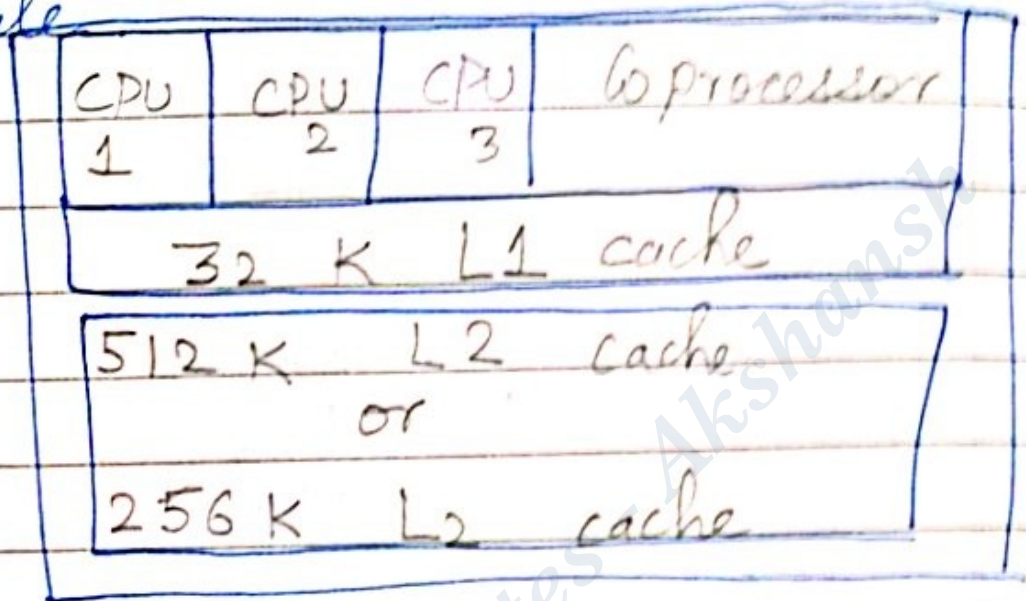 CPU 1
CPU 2
CPU 3
Coprocessor
32 K L1 cache
512 K L2 cache
or
256 K L2 cache
Akshansh